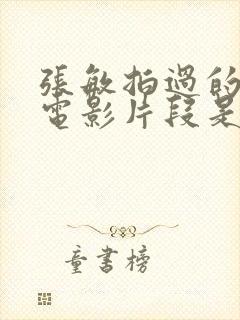 張敏拍過的
電影片段是
童書榜